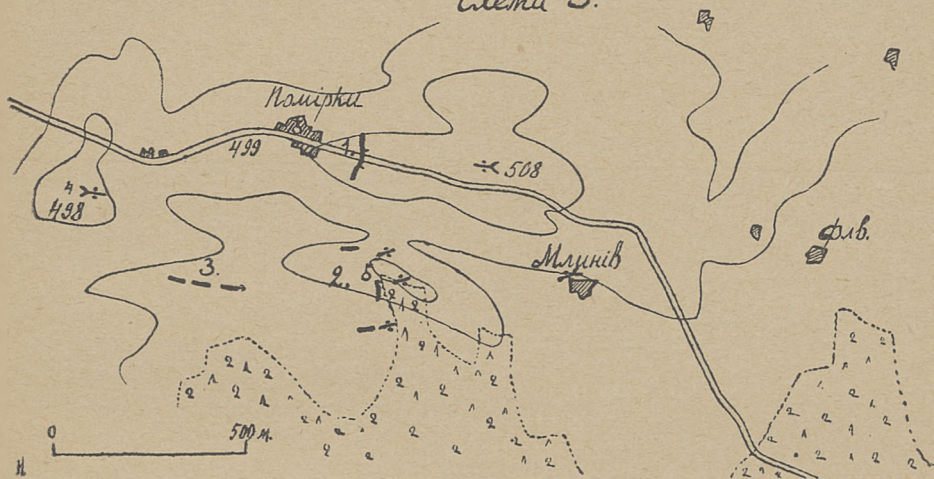 Схема 3.
Помірки
499
1.
508
4
498
флв.
Млинів
3.
2.
5
0
500 м.